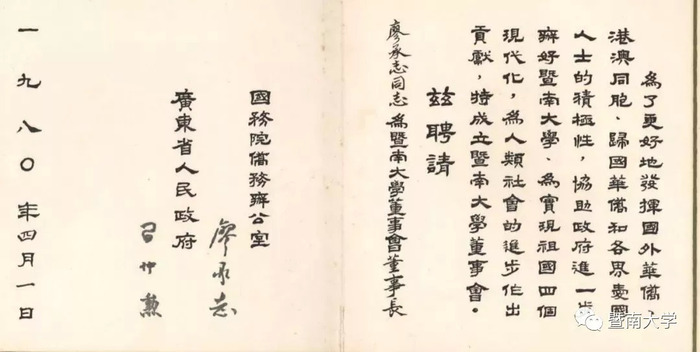 為了更好地發揮國外華僑、
港澳同胞、歸國華僑和各界愛國
人士的積極性，協助政府進一步
辦好暨南大學、為實現祖國四個
現代化，為人類社會的進步作出
貢獻，特成立暨南大學董事會。
茲聘請
廖承志同志為暨南大學董事會董事長
國務院僑務辦公室
廖承志
廣東省人民政府
習仲勳
一九八〇年四月一日
暨南大学